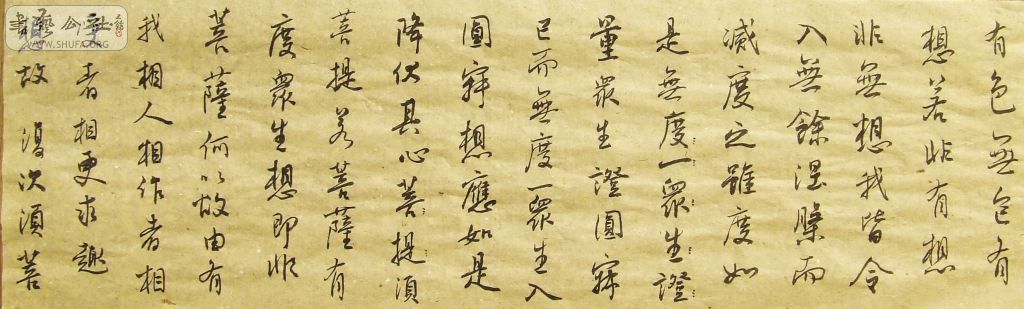 有色無色有
想若非有想
非無想我皆令
入無餘涅槃而
滅度之雖度如
是無度一眾生證
量眾生證圓寂
已而無度一眾生入
圓寂想應如是
降伏其心菩提須
菩提若菩薩有
度眾生想即非
菩薩何以故由有
我相人相作者相
者相更求趣
故 復次須菩
書藝公社
WWW.SHUFA.ORG